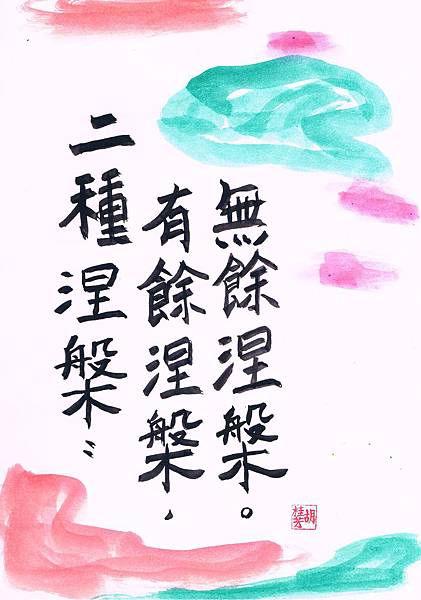 二種涅槃：
有餘涅槃，
無餘涅槃。